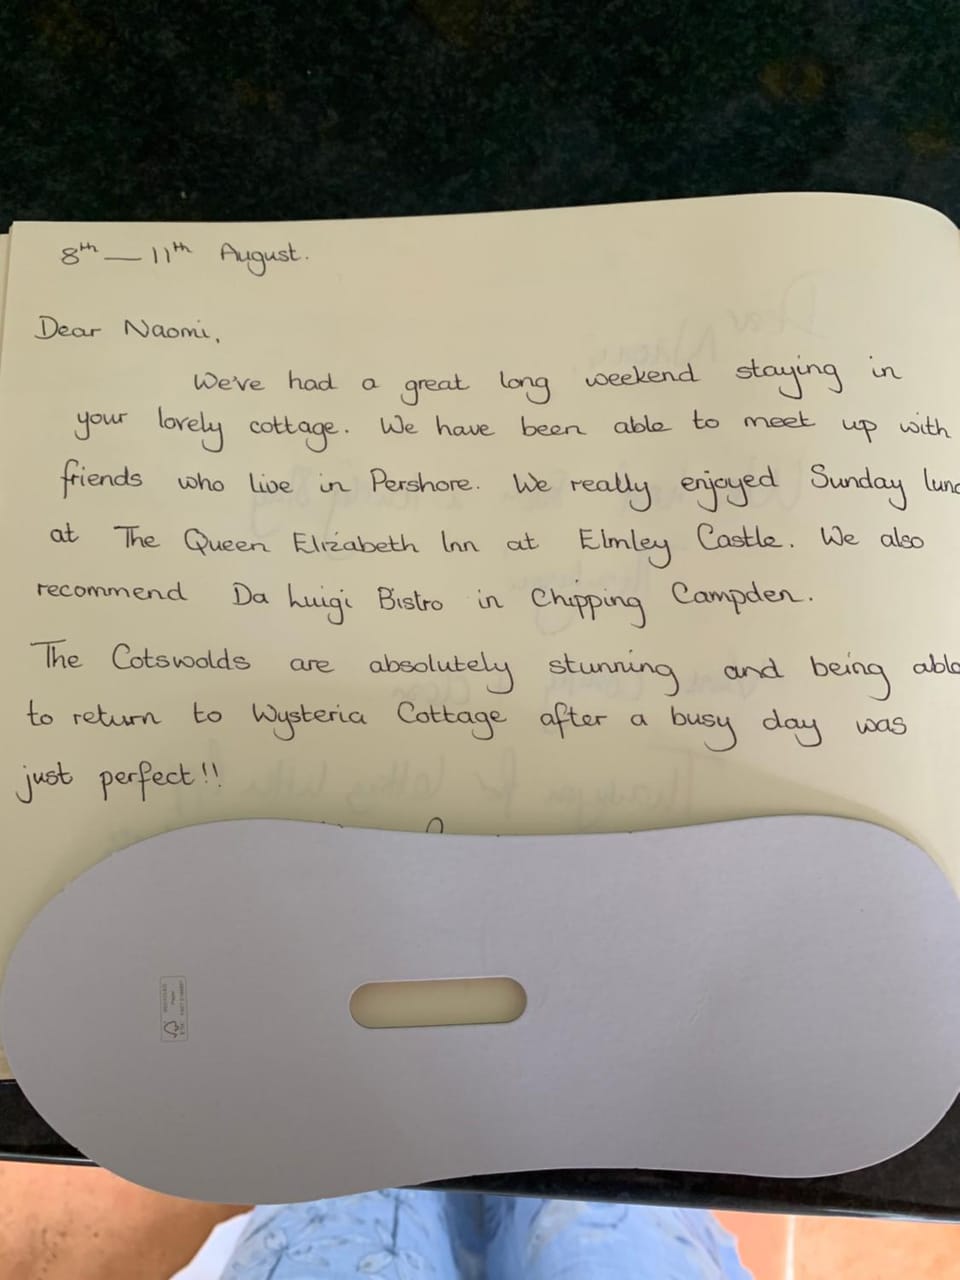 8th — 11th August.
Dear Naomi,
We've had a great long weekend staying in
your lovely cottage. We have been able to meet up with
friends who live in Pershore. We really enjoyed Sunday
at The Queen Elizabeth Inn at Elmley Castle. We also
recommend Da Luigi Bistro in Chipping Campden.
The Cotswolds are absolutely stunning and being
to return to Wysteria Cottage after a busy day was
just perfect!!